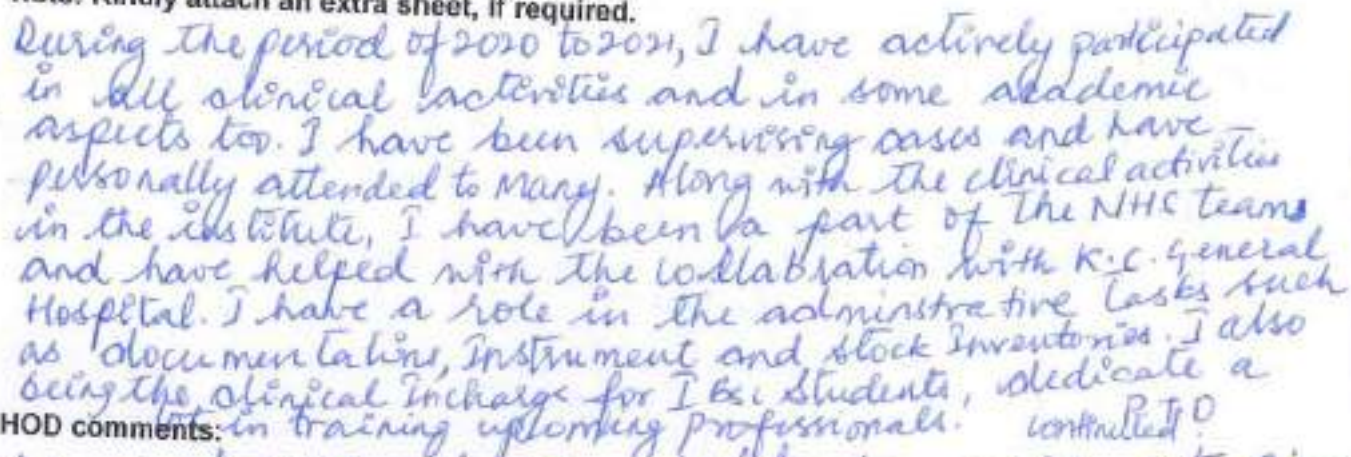 Note: Kindly attach an extra sheet, if required.
During the period of 2020 to 2021, I have actively participated
in all clinical activities and in some academic
aspects too. I have been supervising cases and have
personally attended to many. Along with the clinical activities
in the institute, I have been a part of the NHS teams
and have helped with the collabration with K.C. General
Hospital. I have a role in the adminstrative tasks such
as documentations, instrument and stock Inventories. I also
being the clinical Incharge for I Bsc Students, dedicate a
HOD comments: in training upcoming professionals. continued P.T.O